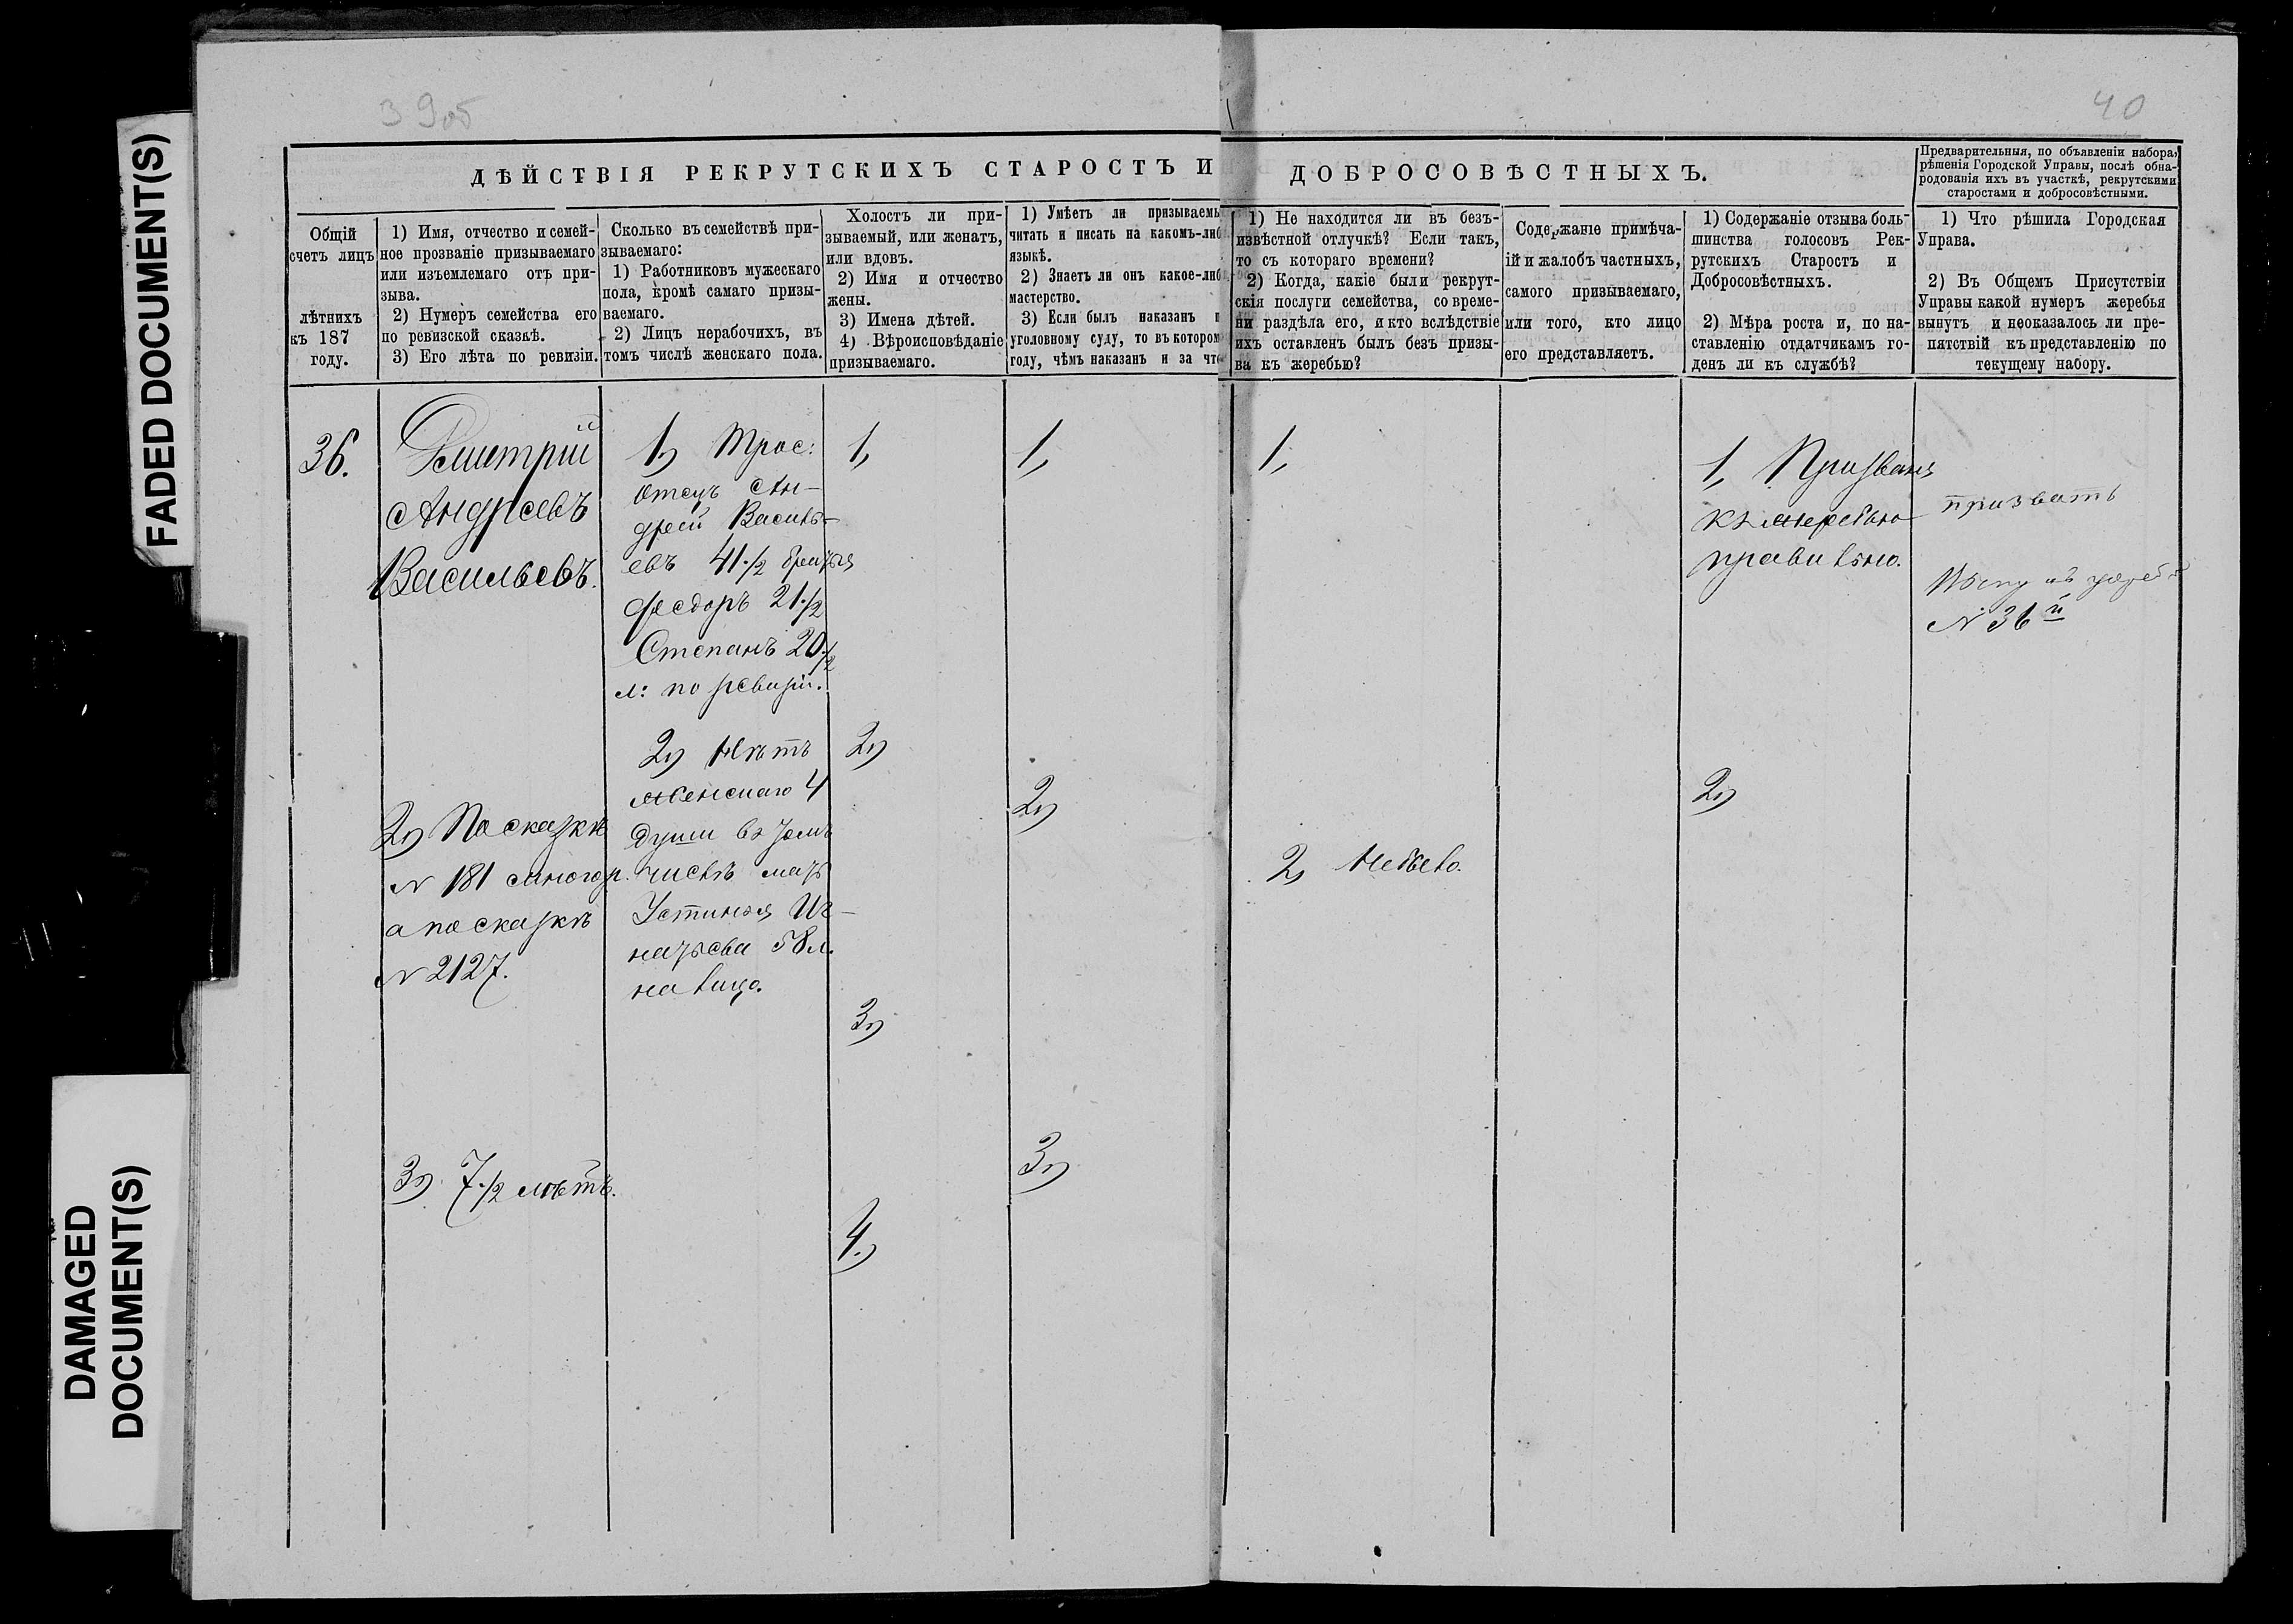 FADED DOCUMENT(S)
DAMAGED
DOCUMENT(S)
39об
40
ДѢЙСТВІЯ РЕКРУТСКИХЪ СТАРОСТЪ И ДОБРОСОВѢСТНЫХЪ.
Предварительныя, по объявленіи набора,
рѣшенія Городской Управы, послѣ обна-
родованія ихъ въ участкѣ, рекрутскими
старостами и добросовѣстными.
Общій
счетъ лицъ
лѣтнихъ
къ 187
году.
1) Имя, отчество и семей-
ное прозваніе призываемаго
или изъемлемаго отъ при-
зыва.
2) Нумеръ семейства его
по ревизской сказкѣ.
3) Его лѣта по ревизіи.
Сколько въ семействѣ при-
зываемаго:
1) Работниковъ мужескаго
пола, кромѣ самаго призы-
ваемаго.
2) Лицъ нерабочихъ, въ
томъ числѣ женскаго пола.
Холостъ ли при-
зываемый, или женатъ,
или вдовъ.
2) Имя и отчество
жены.
3) Имена дѣтей.
4) Вѣроисповѣданіе
призываемаго.
1) Умѣетъ ли призываемы
читать и писать на какомъ-либ
языкѣ.
2) Знаетъ ли онъ какое-либ
мастерство.
3) Если былъ наказанъ п
уголовному суду, то въ котором
году, чѣмъ наказанъ и за чт
1) Не находится ли въ безъ-
извѣстной отлучкѣ? Если такъ,
то съ котораго времени?
2) Когда, какіе были рекрут-
скія послуги семейства, со време-
ни раздѣла его, и кто вслѣдствіе
ихъ оставленъ былъ безъ призы-
ва къ жеребью?
Содержаніе примѣча-
ій и жалобъ частныхъ,
самого призываемаго,
или того, кто лицо
его представляетъ.
1) Содержаніе отзыва боль-
шинства голосовъ Рек-
рутскихъ Старостъ и
Добросовѣстныхъ.
2) Мѣра роста и, по на-
ставленію отдатчикамъ го-
денъ ли къ службѣ?
1) Что рѣшила Городская
Управа.
2) Въ Общемъ Присутствіи
Управы какой нумеръ жеребья
вынутъ и неоказалось ли пре-
пятствій къ представленію по
текущему набору.
36.
Дмитрій
Андреевъ
Васильевъ.
2) По сказкѣ
№ 181
а по сказкѣ
№ 2127.
3) 7 1/2 лѣтъ.
1) Трое:
отецъ Ан-
дрей Василь-
евъ 41 1/2 братья
Федоръ 21 1/2
Степанъ 20 1/2
л: по ревизіи.
2) Нѣтъ
женскаго 4
души въ томъ
числѣ мать
Устинья Иг-
натьева 58 л.
на лицо.
1,
2)
3)
4.)
1,
2)
3)
1,
2, Небыло.
1, Призванъ
къ жеребью
правильно.
2)
призвать
№ 36й